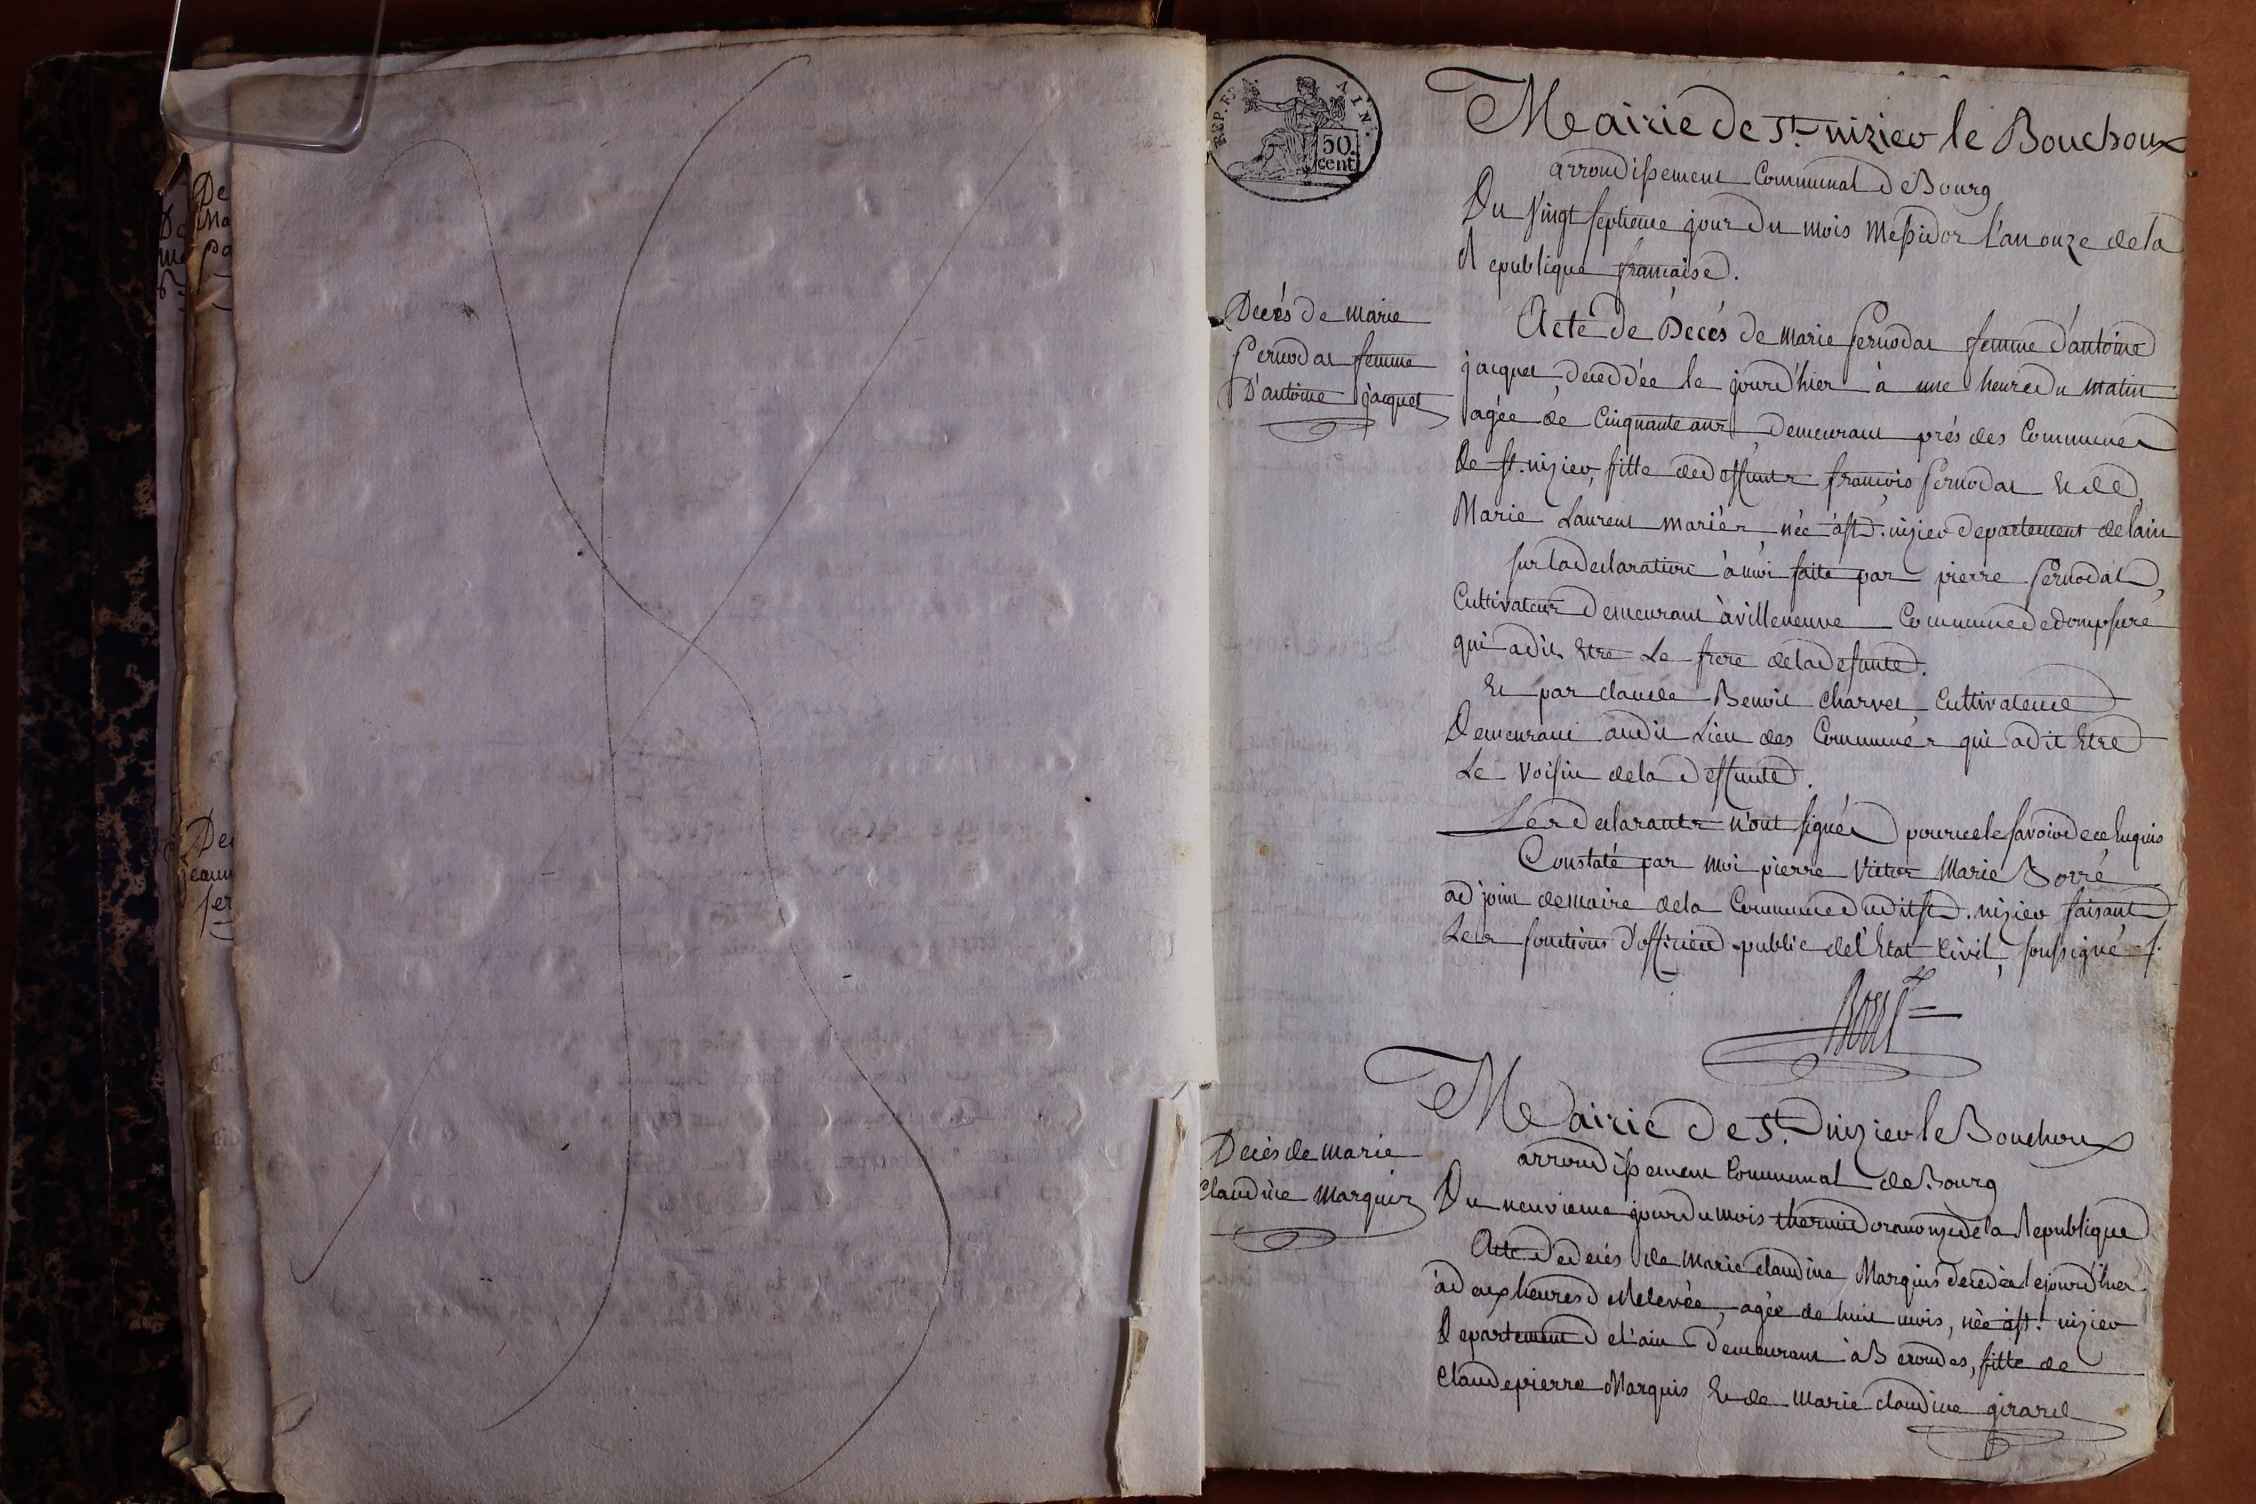 De
Ma
De
REP. FR. AIN.
50. cent
Mairie de St. nizier le Bouchoux
arrondissement Communal de Bourg
Du vingt septieme jour du mois Messidor l'an onze de la
Republique francaise.
Decés de marie
femme
D'antoine jacquet
Acte de Décés de marie femme d'antoine
jacquet, deceddée le jourd'hier à une heure du matin
agée de Cinquante ans, demeurant prés des Communes
de st. nizier, fille de deffunts francois et de
Marie Laurent mariés, née à st. nizier departement de l'ain
sur la declaration à moi faite par pierre
Cultivateur demeurant à villeneuve Commune de dompsure
qui a dit Etre Le frere de la defunte.
Et par claude Benoit Charvet, Cultivateur
Demeurant audit Lieu des Communes qui a dit Etre
Le voisin de la deffunte.
Les declarants n'ont signés pour ne le savoir de ce Enquis
Constaté par moi pierre victor Marie Borré
adjoint de maire de la Commune dudit st. nizier faisant
Les fonctions d'officier public de l'Etat Civil, soussigné
Decès de marie
Claudine Marquis
Mairie de St. nizier le Bouchoux
arrondissement Communal de Bourg
Du neuvieme jour du mois thermidor an onze de la Republique
Acte de decés de marie claudine Marquis decedée le jourd'hier
à deux heures de Relevée, agée de huit mois, née à st. nizier
Departement de l'ain demeurant à Beroudes, fille de
Claude pierre Marquis Et de marie claudine girard